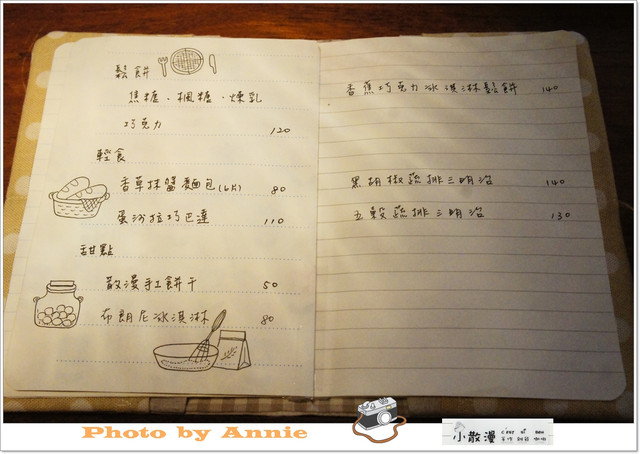 鬆餅
焦糖、楓糖、煉乳
巧克力 120
輕食
香草抹醬麵包(6片) 80
蛋沙拉巧巴達 110
甜點
散漫手工餅干 50
布朗尼冰淇淋 80
香蕉巧克力冰淇淋鬆餅 140
黑胡椒蔬排三明治 140
五穀蔬排三明治 130
Photo by Annie
小散漫